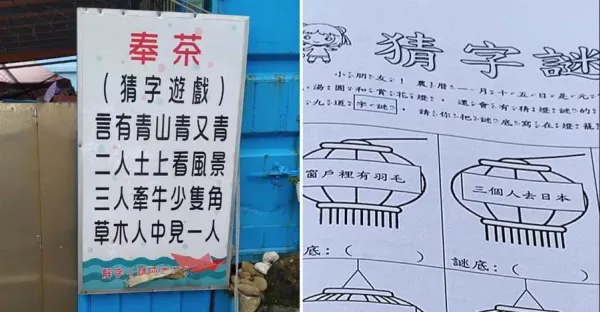 奉茶
(猜字遊戲)
言有青山青又青
二人土上看風景
三人牽牛少隻角
草木人中見一人
猜字謎
小朋友!農曆一月十五日是元
湯圓和賞花燈,還會有精燈謎的
九道字謎,請你把謎底寫在燈籠
窗戶裡有羽毛
三個人去日本
底:( )
謎底:(